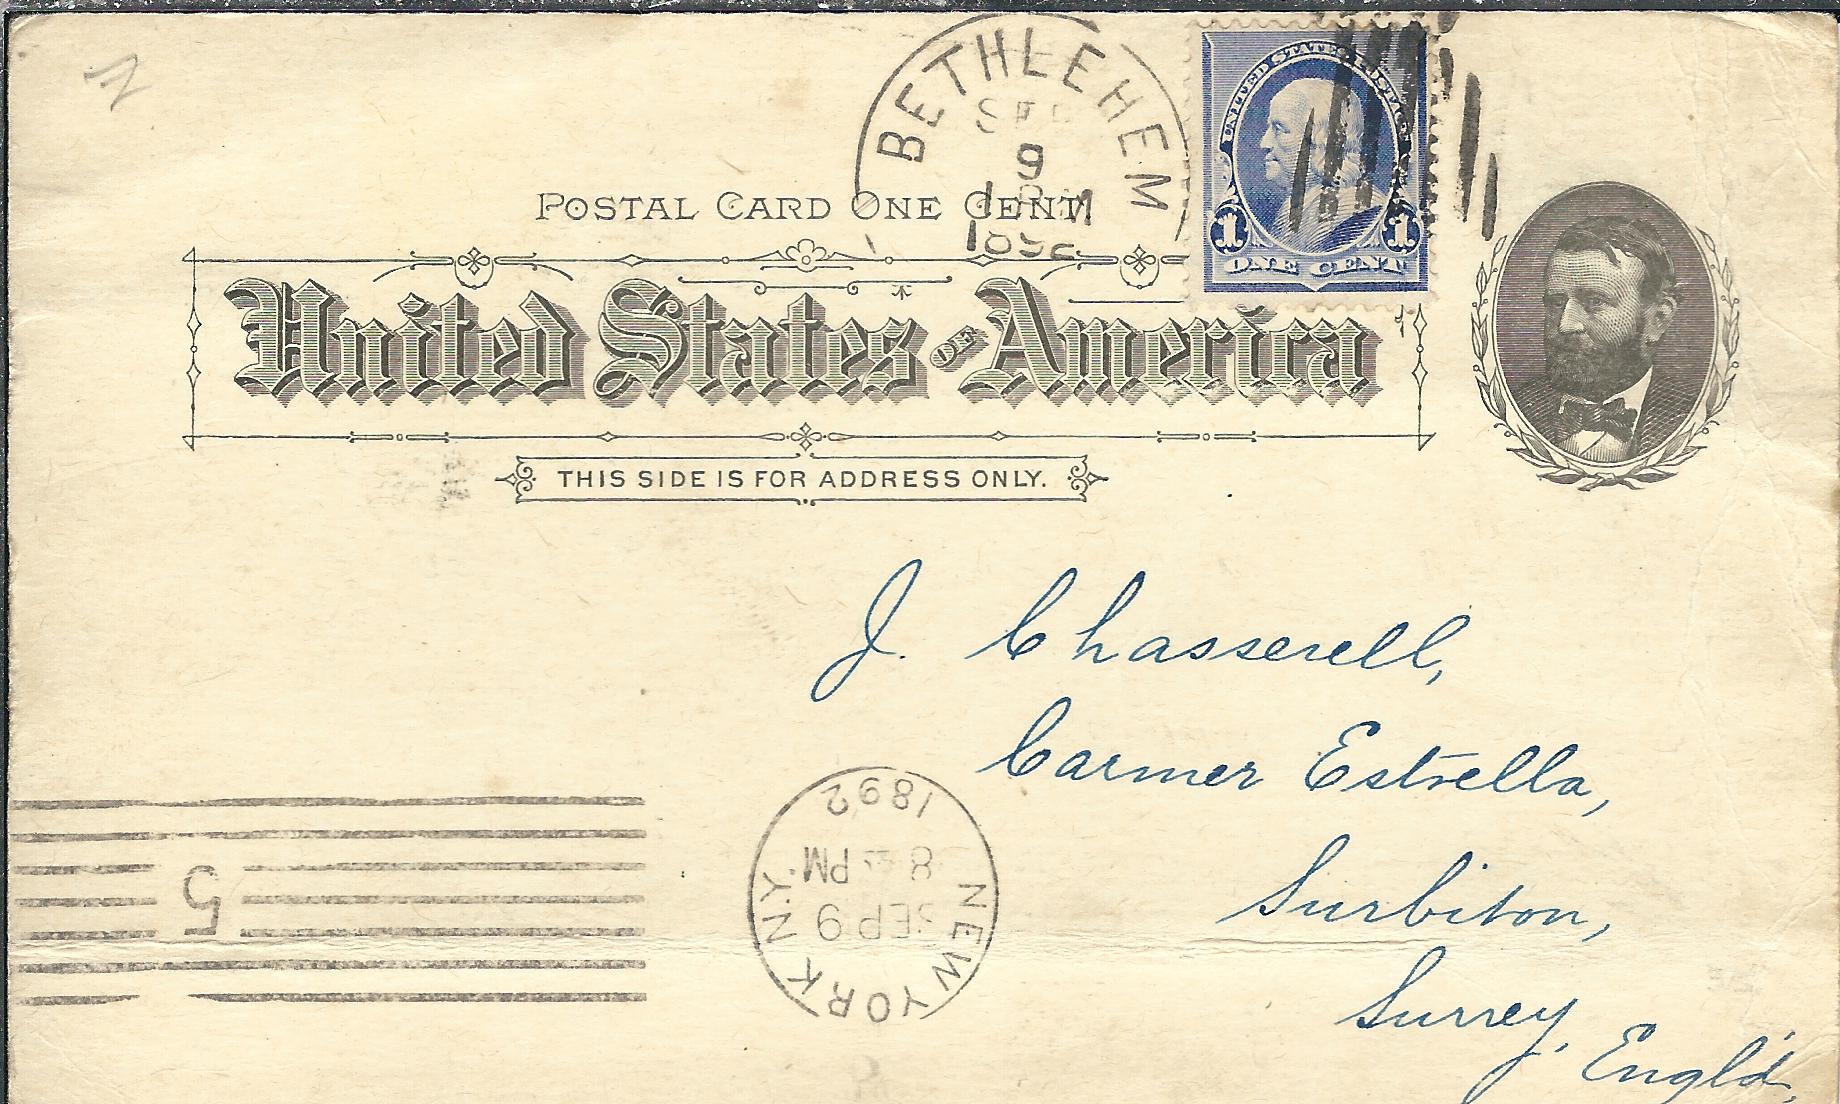 BETHLEHEM
SEP
9
1 PM
1892
UNITED STATES POSTAGE
1 1
ONE CENT
POSTAL CARD ONE CENT
United States OF America
THIS SIDE IS FOR ADDRESS ONLY.
J. Chasserell,
Carmer Estrella,
Surbiton,
Surrey,
Engl'd,
NEW YORK N.Y.
SEP 9
8 PM
1892
5
N